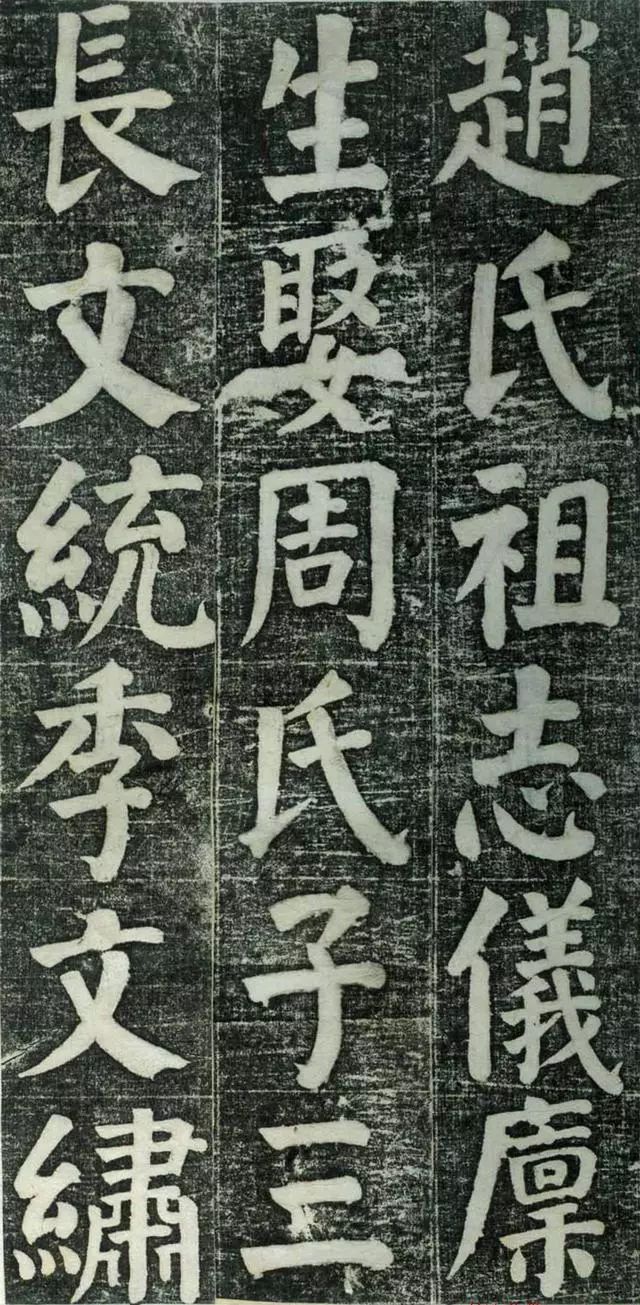 趙氏祖志儀廩
生娶周氏子三
長文統季文繡